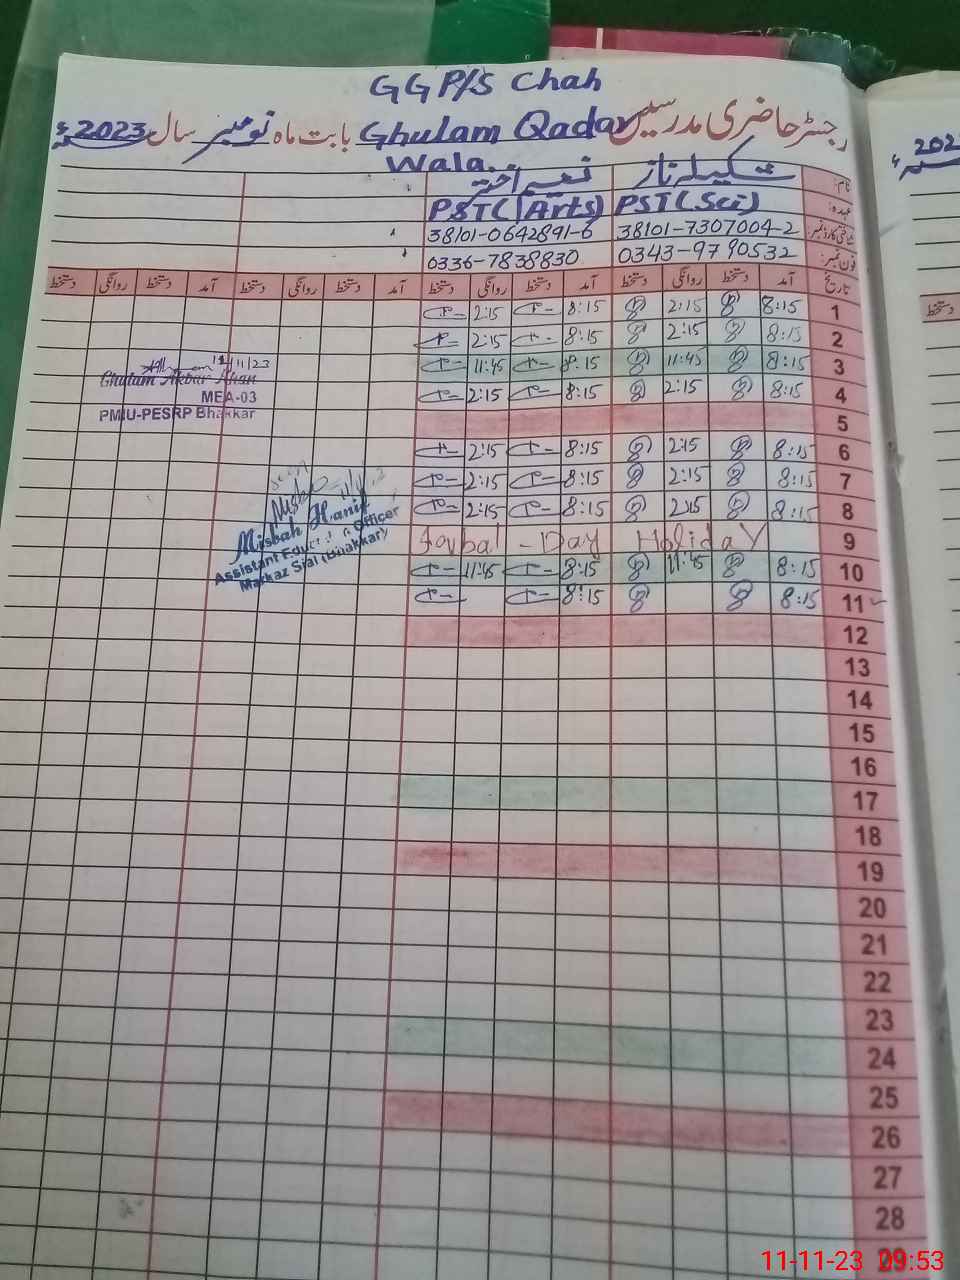 GGP/S Chah
رجسٹر حاضری مدرسین Ghulam Qadar بابت ماہ نومبر سال 2023ء
Wala.
نام: شکیلہ ناز نسیم اختر
عہدہ: PST(Sci) PST(Arts)
شناختی کارڈ نمبر: 38101-7307004-2 38101-0642891-6
فون نمبر: 0343-9790532 0336-7838830
تاریخ آمد دستخط روانگی دستخط آمد دستخط روانگی دستخط آمد دستخط روانگی دستخط آمد دستخط روانگی دستخط
1 8:15 2:15 8:15 2:15
2 8:15 2:15 8:15 2:15
3 8:15 11:45 8:15 11:45
4 8:15 2:15 8:15 2:15
5
6 8:15 2:15 8:15 2:15
7 8:15 2:15 8:15 2:15
8 8:15 2:15 8:15 2:15
9 Iqbal - Day Holiday
10 8:15 11:45 8:15 11:45
11 8:15 8:15
12
13
14
15
16
17
18
19
20
21
22
23
24
25
26
27
28
29
11/11/23
Ghulam Akbar Khan
MEA-03
PMIU-PESRP Bhakkar
Seen
Misbah Hanif
Assistant Education Officer
Markaz Sial (Bhakkar)
دستخط
11-11-23 09:53